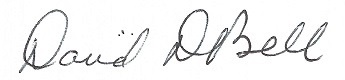 David D Bell